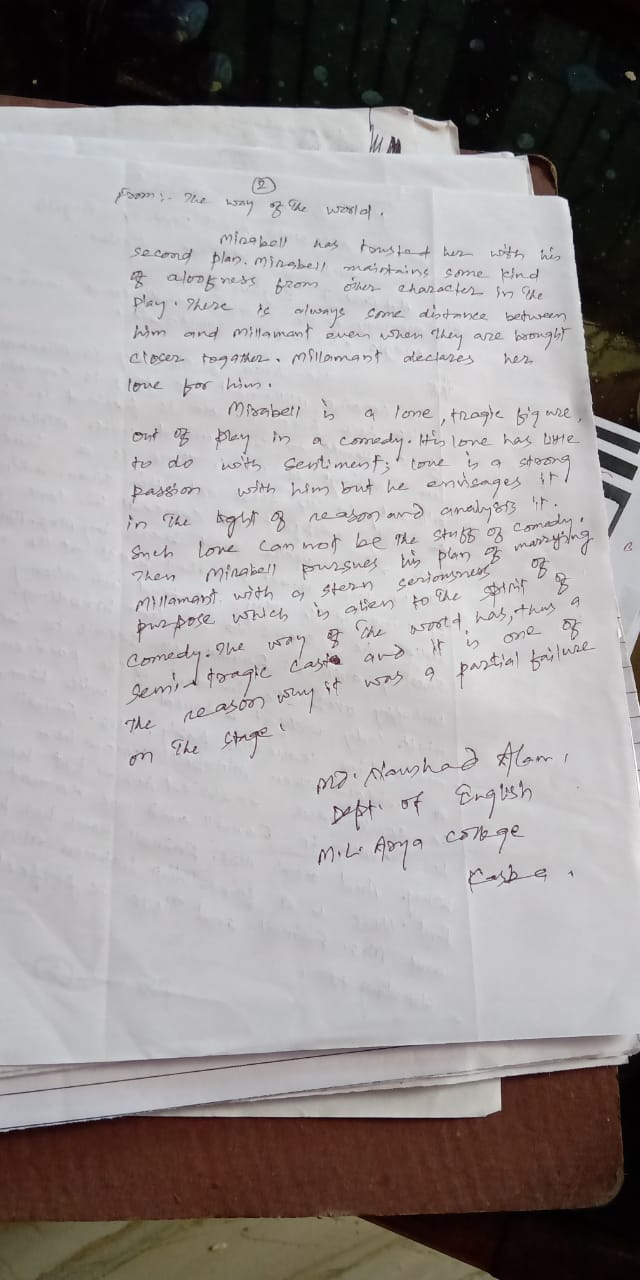 ②
From:- The way of The world.
Mirabell has trusted her with his
second plan. Mirabell maintains some kind
of aloofness from other character in The
play. There is always some distance between
him and Millamant even when They are brought
closer together. Millamant declares her
love for him.
Mirabell is a lone, tragic figure,
out of play in a comedy. His love has little
to do with sentiment; love is a strong
passion with him but he envisages it
in The light of reason and analysis it.
Such love can not be the stuff of comedy.
Then Mirabell pursues his plan of marrying
Millamant with a stern seriousness of
purpose which is alien to The spirit of
comedy. The way of The world has, thus a
semi-tragic cast and it is one of
The reason why it was a partial failure
on The stage.
Md. Naushad Alam,
Dept. of English
M.L. Arya College
Kasba.